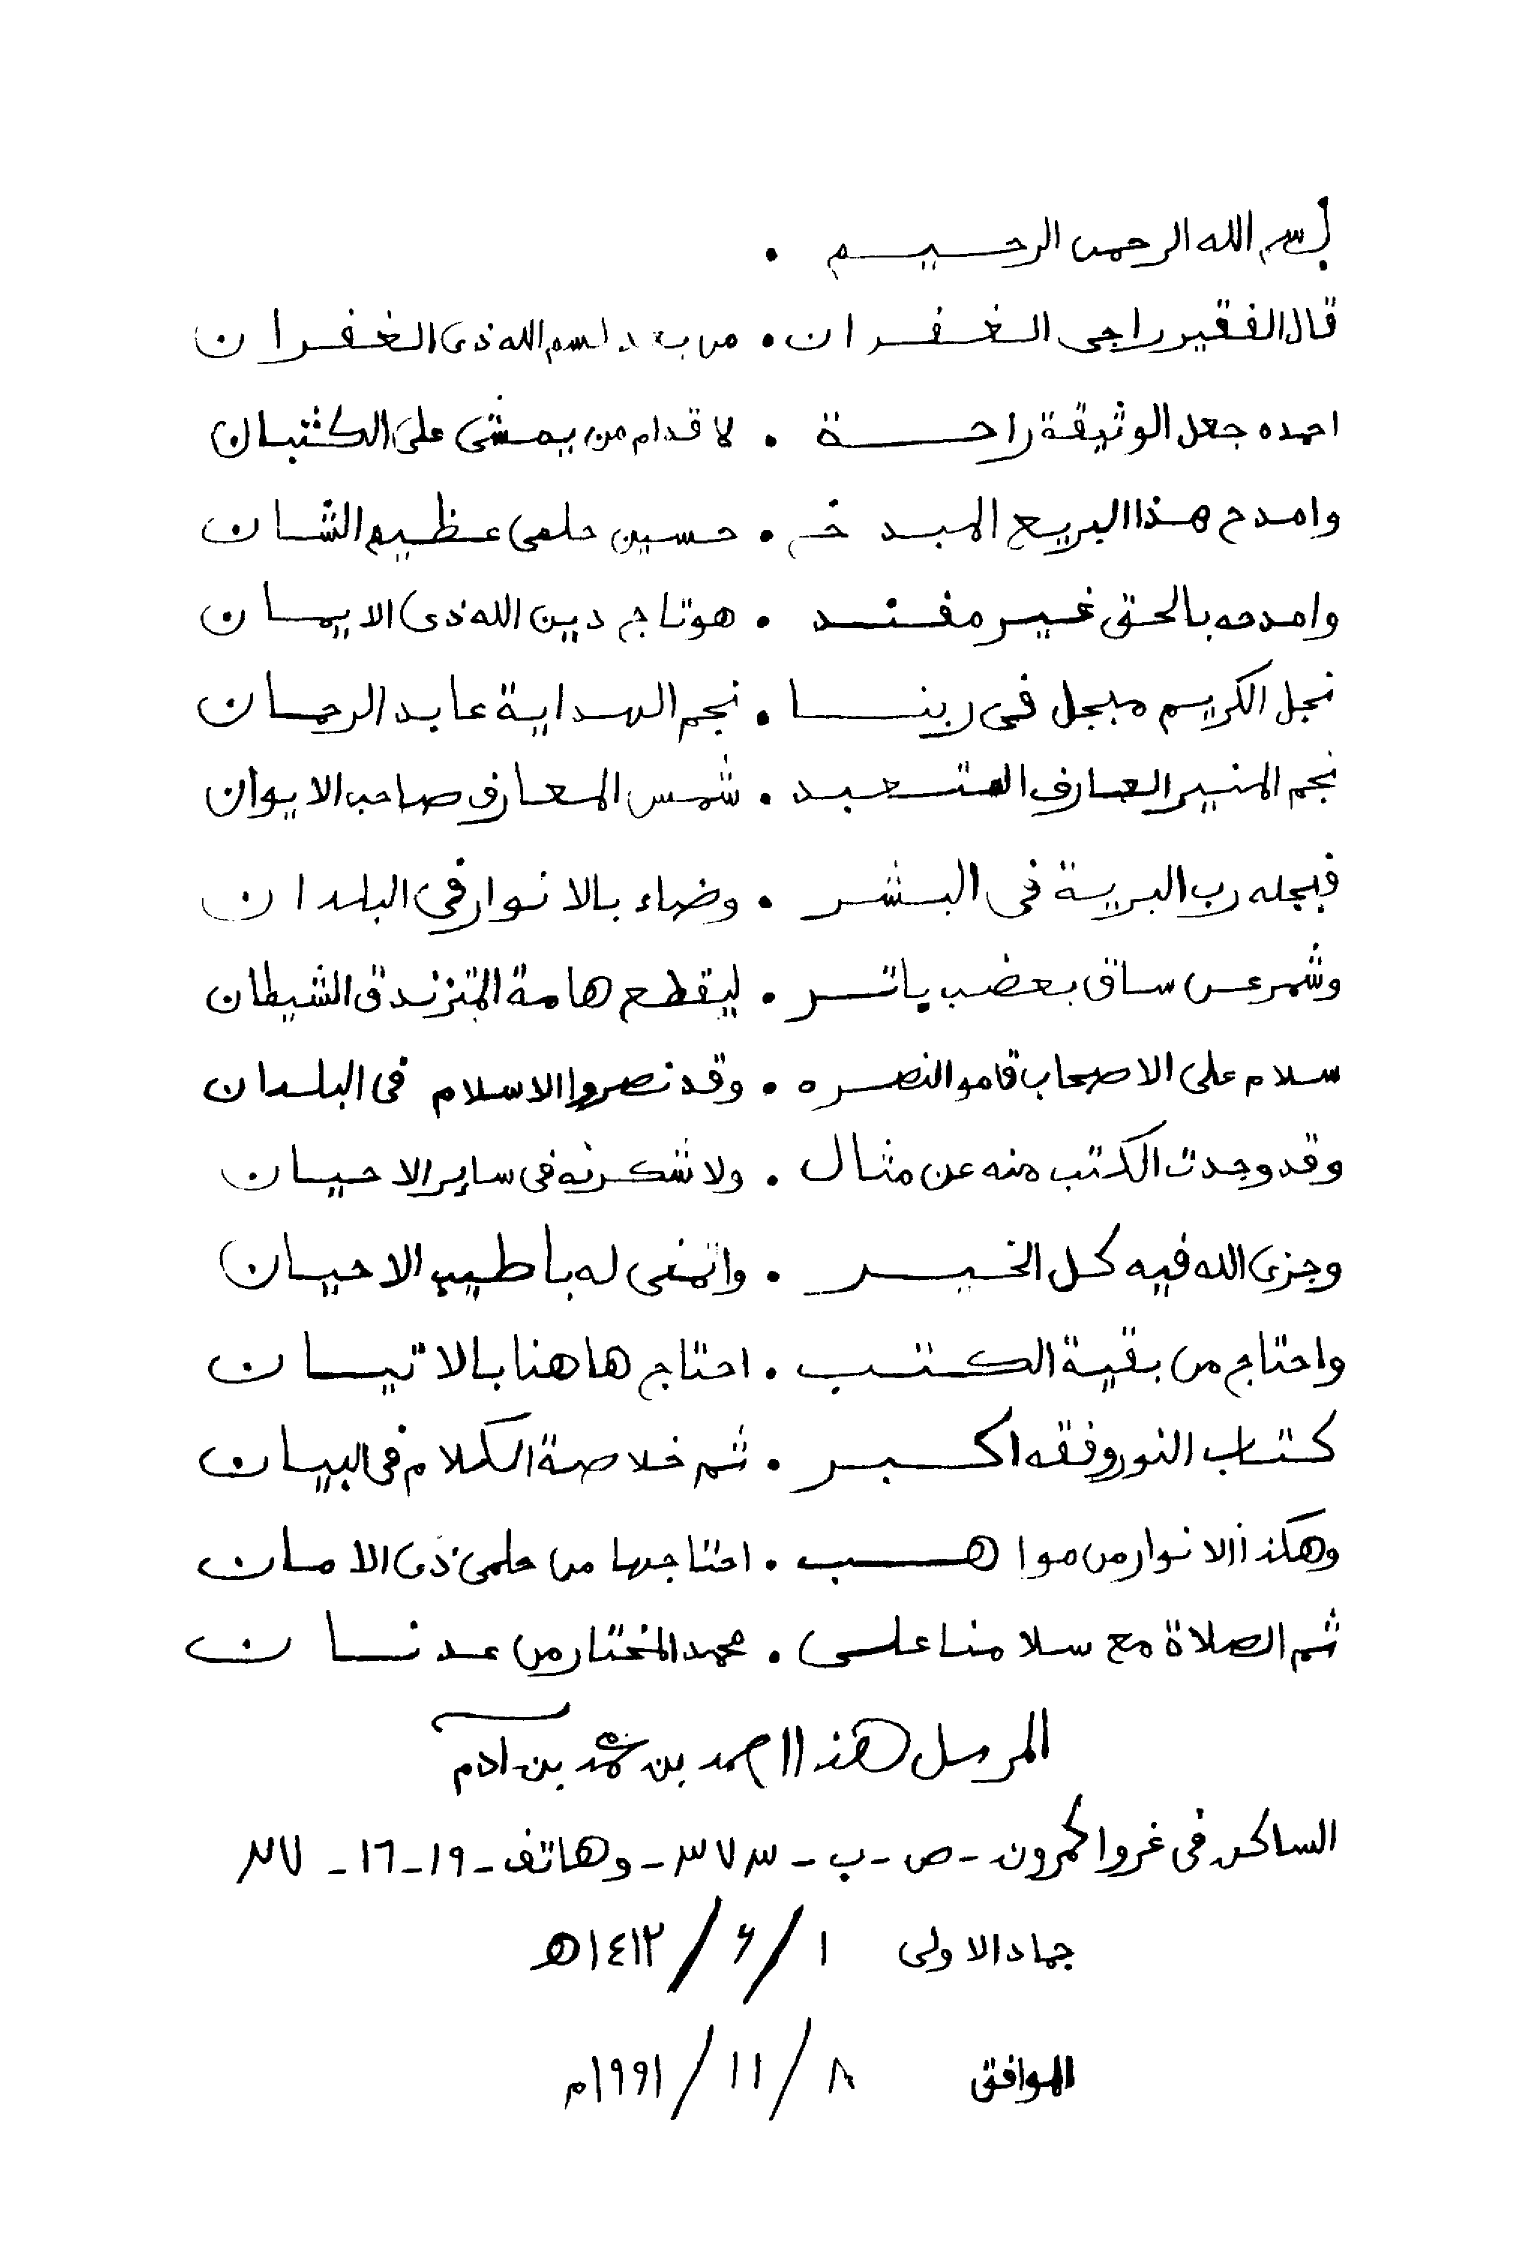 بسم الله الرحمن الرحيم .
قال الفقير راجى الغفران . من بعد بسم الله ذى الغفران
احمده جعل الوثيقة راحة . لاقدام من يمشى على الكثبان
وامدح هذا البريع المبد خر . حسين حلمى عظيم الشان
وامدحه بالحق غير مفند . هو تاج دين الله ذى الايمان
نجل الكريم مبجل فى ربنا . نجم الهداية عابد الرحمان
نجم المنير العارف المتعبد . شمس المعارف صاحب الايوان
فبجله رب البرية فى البشر . وضاء بالانوار فى البلدان
وشمر عن ساق بعضب باتر . ليقطع هامة المتزندق الشيطان
سلام على الاصحاب قاموا لنصره . وقد نصروا الاسلام فى البلدان
وقد وجدت الكتب منه عن مثال . ولا شكرنه فى ساير الاحيان
وجزى الله فيه كل الخير . واتمنى له باطيب الاحيان
واحتاج من بقية الكتب . احتاج هاهنا بالاتيان
كتاب النور وفقه اكبر . ثم خلاصة الكلام فى البيان
وهكذا الانوار من مواهب . احتاجها من حلمى ذى الامان
ثم الصلاة مع سلامنا على . محمد المختار من عدنان
المرسل هذا احمد بن محمد بن ادم
الساكن فى غروا كمرون - ص - ب - ٣٧٣ - وهاتف - ١٩ - ١٦ - ٢٧
جماد الاولى ١ / ٦ / ١٤١٢ه
الموافق ٨ / ١١ / ١٩٩١م